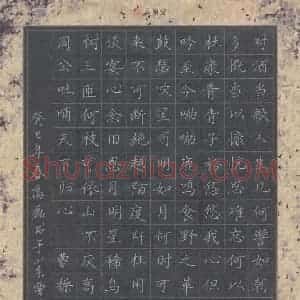 对酒当歌人生几何譬如朝
多慨当以慷忧思难忘何以
杜康青青子衿悠悠我心但
吟至今呦呦鹿鸣食野之苹
鼓瑟吹笙明明如月何时可
来不可断绝越陌度阡枉用
谈宴心念旧恩月明星稀乌
树三匝何枝可依山不厌高
周公吐哺天下归心 曹操
癸巳年
Shufaziliao.com